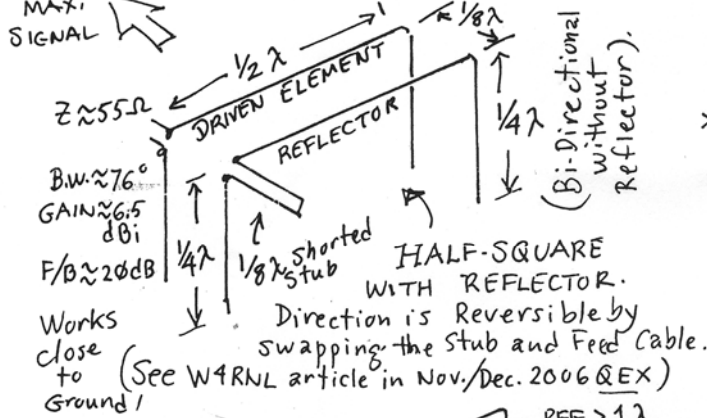 MAX.
SIGNAL
1/2 λ
1/8 λ
Z≈55Ω
DRIVEN ELEMENT
REFLECTOR
1/4 λ
(Bi-Directional
without
Reflector).
B.W.≈76°
GAIN≈6.5
dBi
F/B≈20dB
1/4 λ
1/8 λ shorted
stub
HALF-SQUARE
WITH REFLECTOR.
Works
close
to
Ground!
Direction is Reversible by
swapping the Stub and Feed Cable.
(See W4RNL article in Nov./Dec. 2006 QEX)